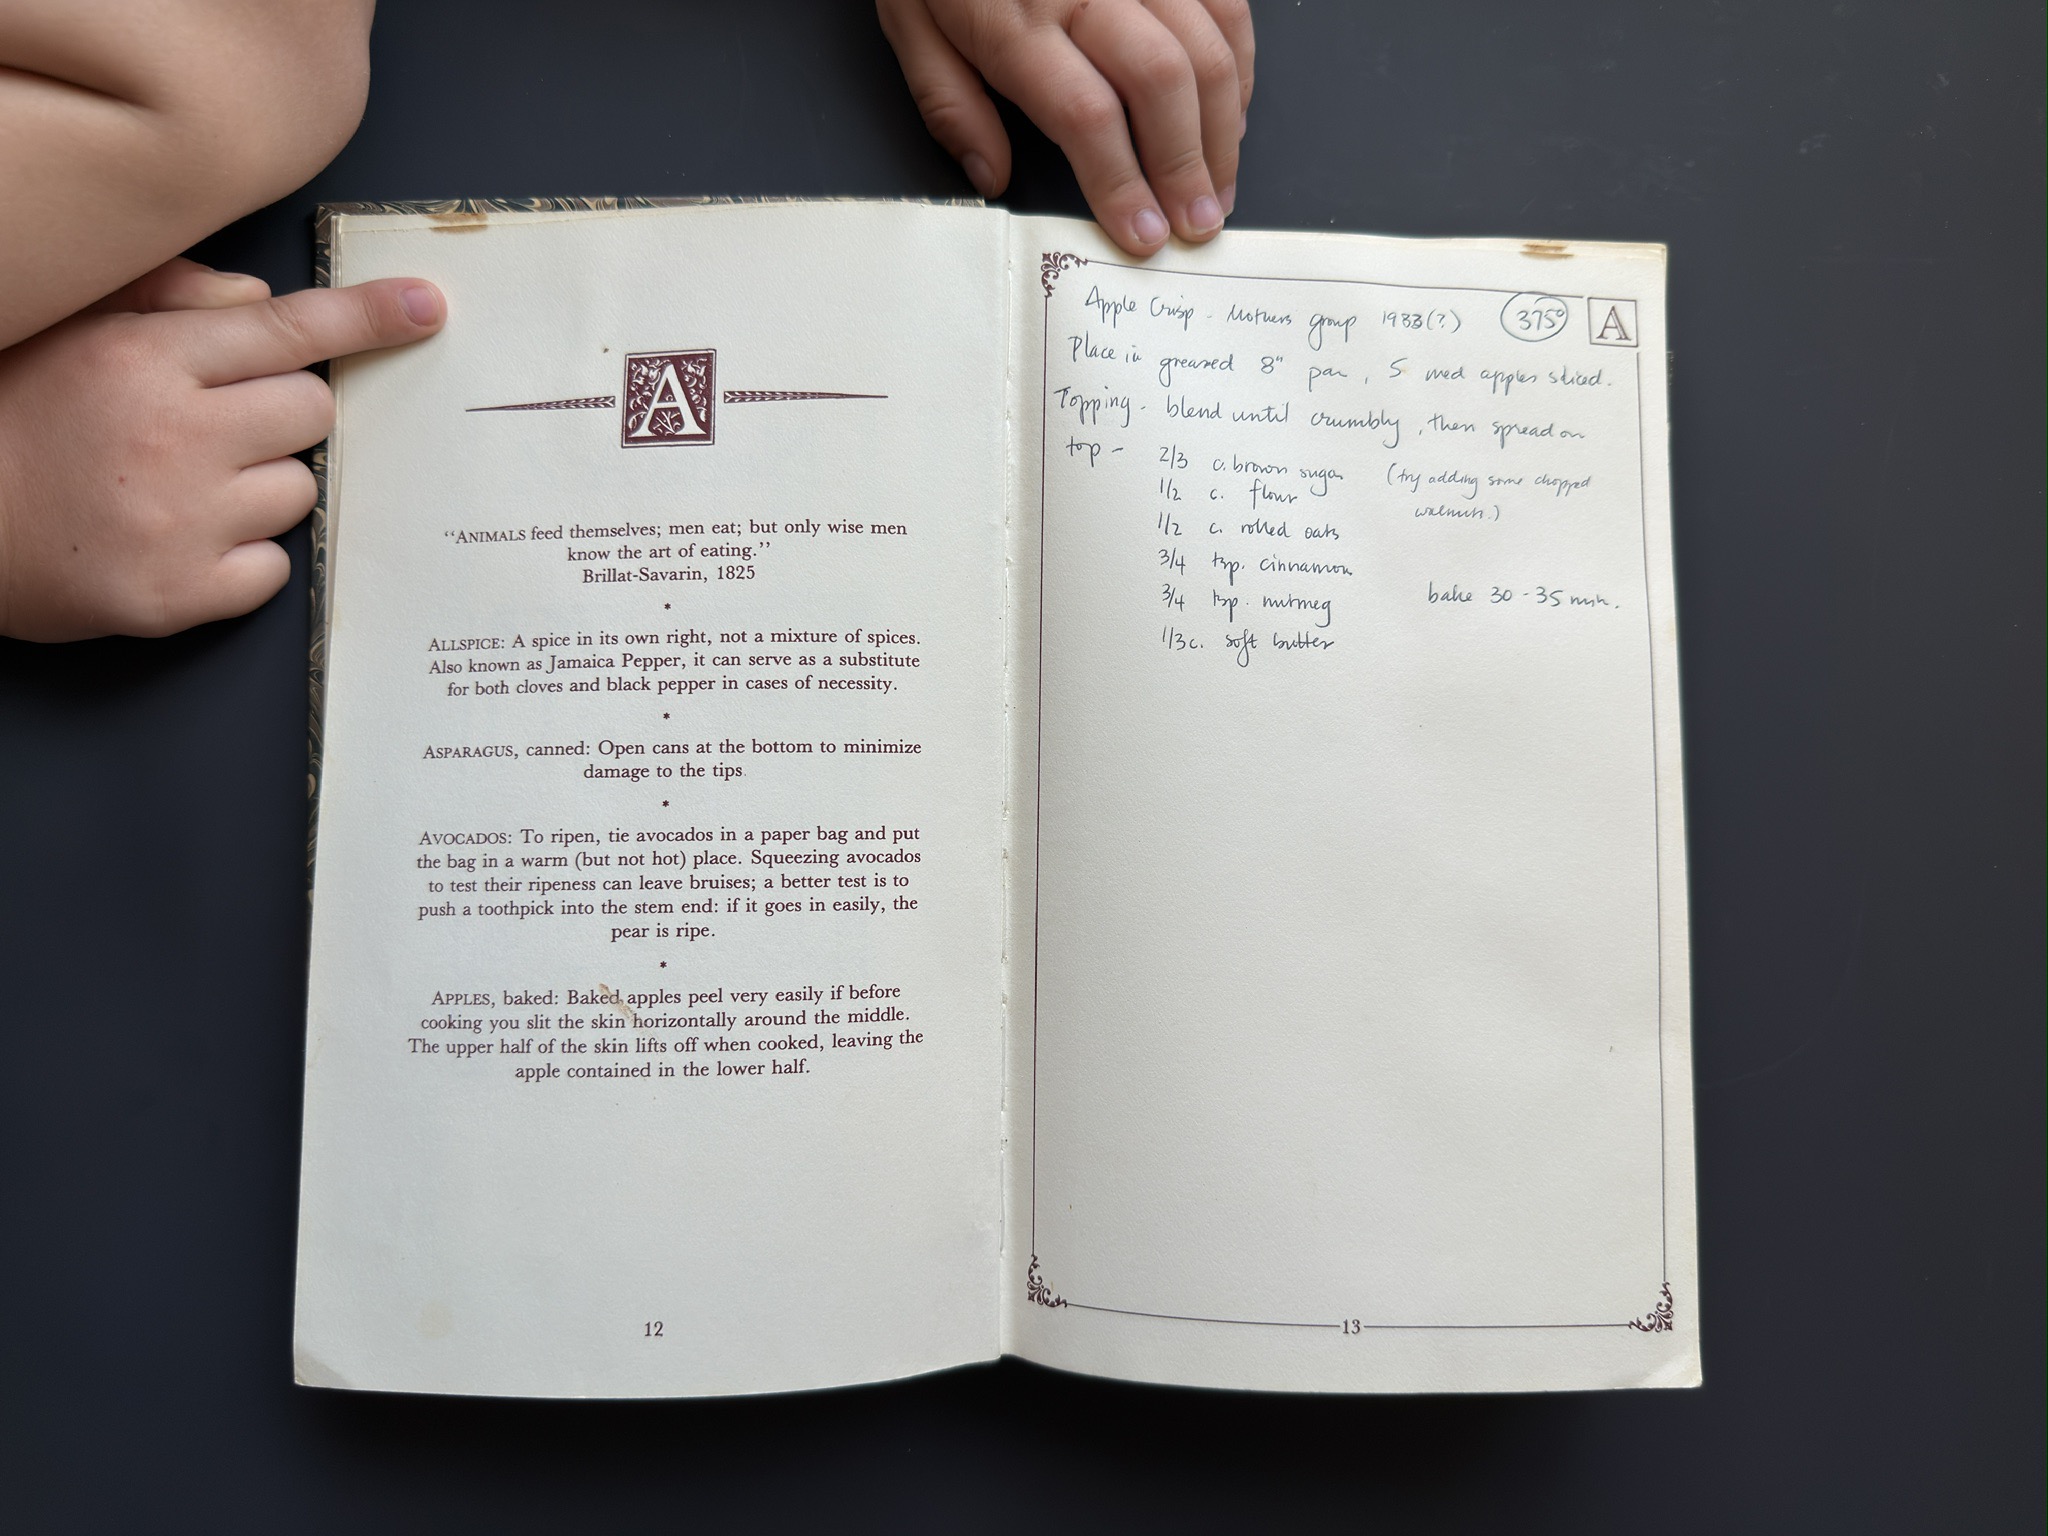 A
"ANIMALS feed themselves; men eat; but only wise men
know the art of eating."
Brillat-Savarin, 1825
*
ALLSPICE: A spice in its own right, not a mixture of spices.
Also known as Jamaica Pepper, it can serve as a substitute
for both cloves and black pepper in cases of necessity.
*
ASPARAGUS, canned: Open cans at the bottom to minimize
damage to the tips.
*
AVOCADOS: To ripen, tie avocados in a paper bag and put
the bag in a warm (but not hot) place. Squeezing avocados
to test their ripeness can leave bruises; a better test is to
push a toothpick into the stem end: if it goes in easily, the
pear is ripe.
*
APPLES, baked: Baked apples peel very easily if before
cooking you slit the skin horizontally around the middle.
The upper half of the skin lifts off when cooked, leaving the
apple contained in the lower half.
12
Apple Crisp - Mothers group 1983(?) 375° A
Place in greased 8" pan, 5 med apples sliced.
Topping - blend until crumbly, then spread on
top - 2/3 c. brown sugar (try adding some chopped
walnuts.)
1/2 c. flour
1/2 c. rolled oats
3/4 tsp. cinnamon
3/4 tsp. nutmeg bake 30-35 min.
1/3 c. soft butter
13